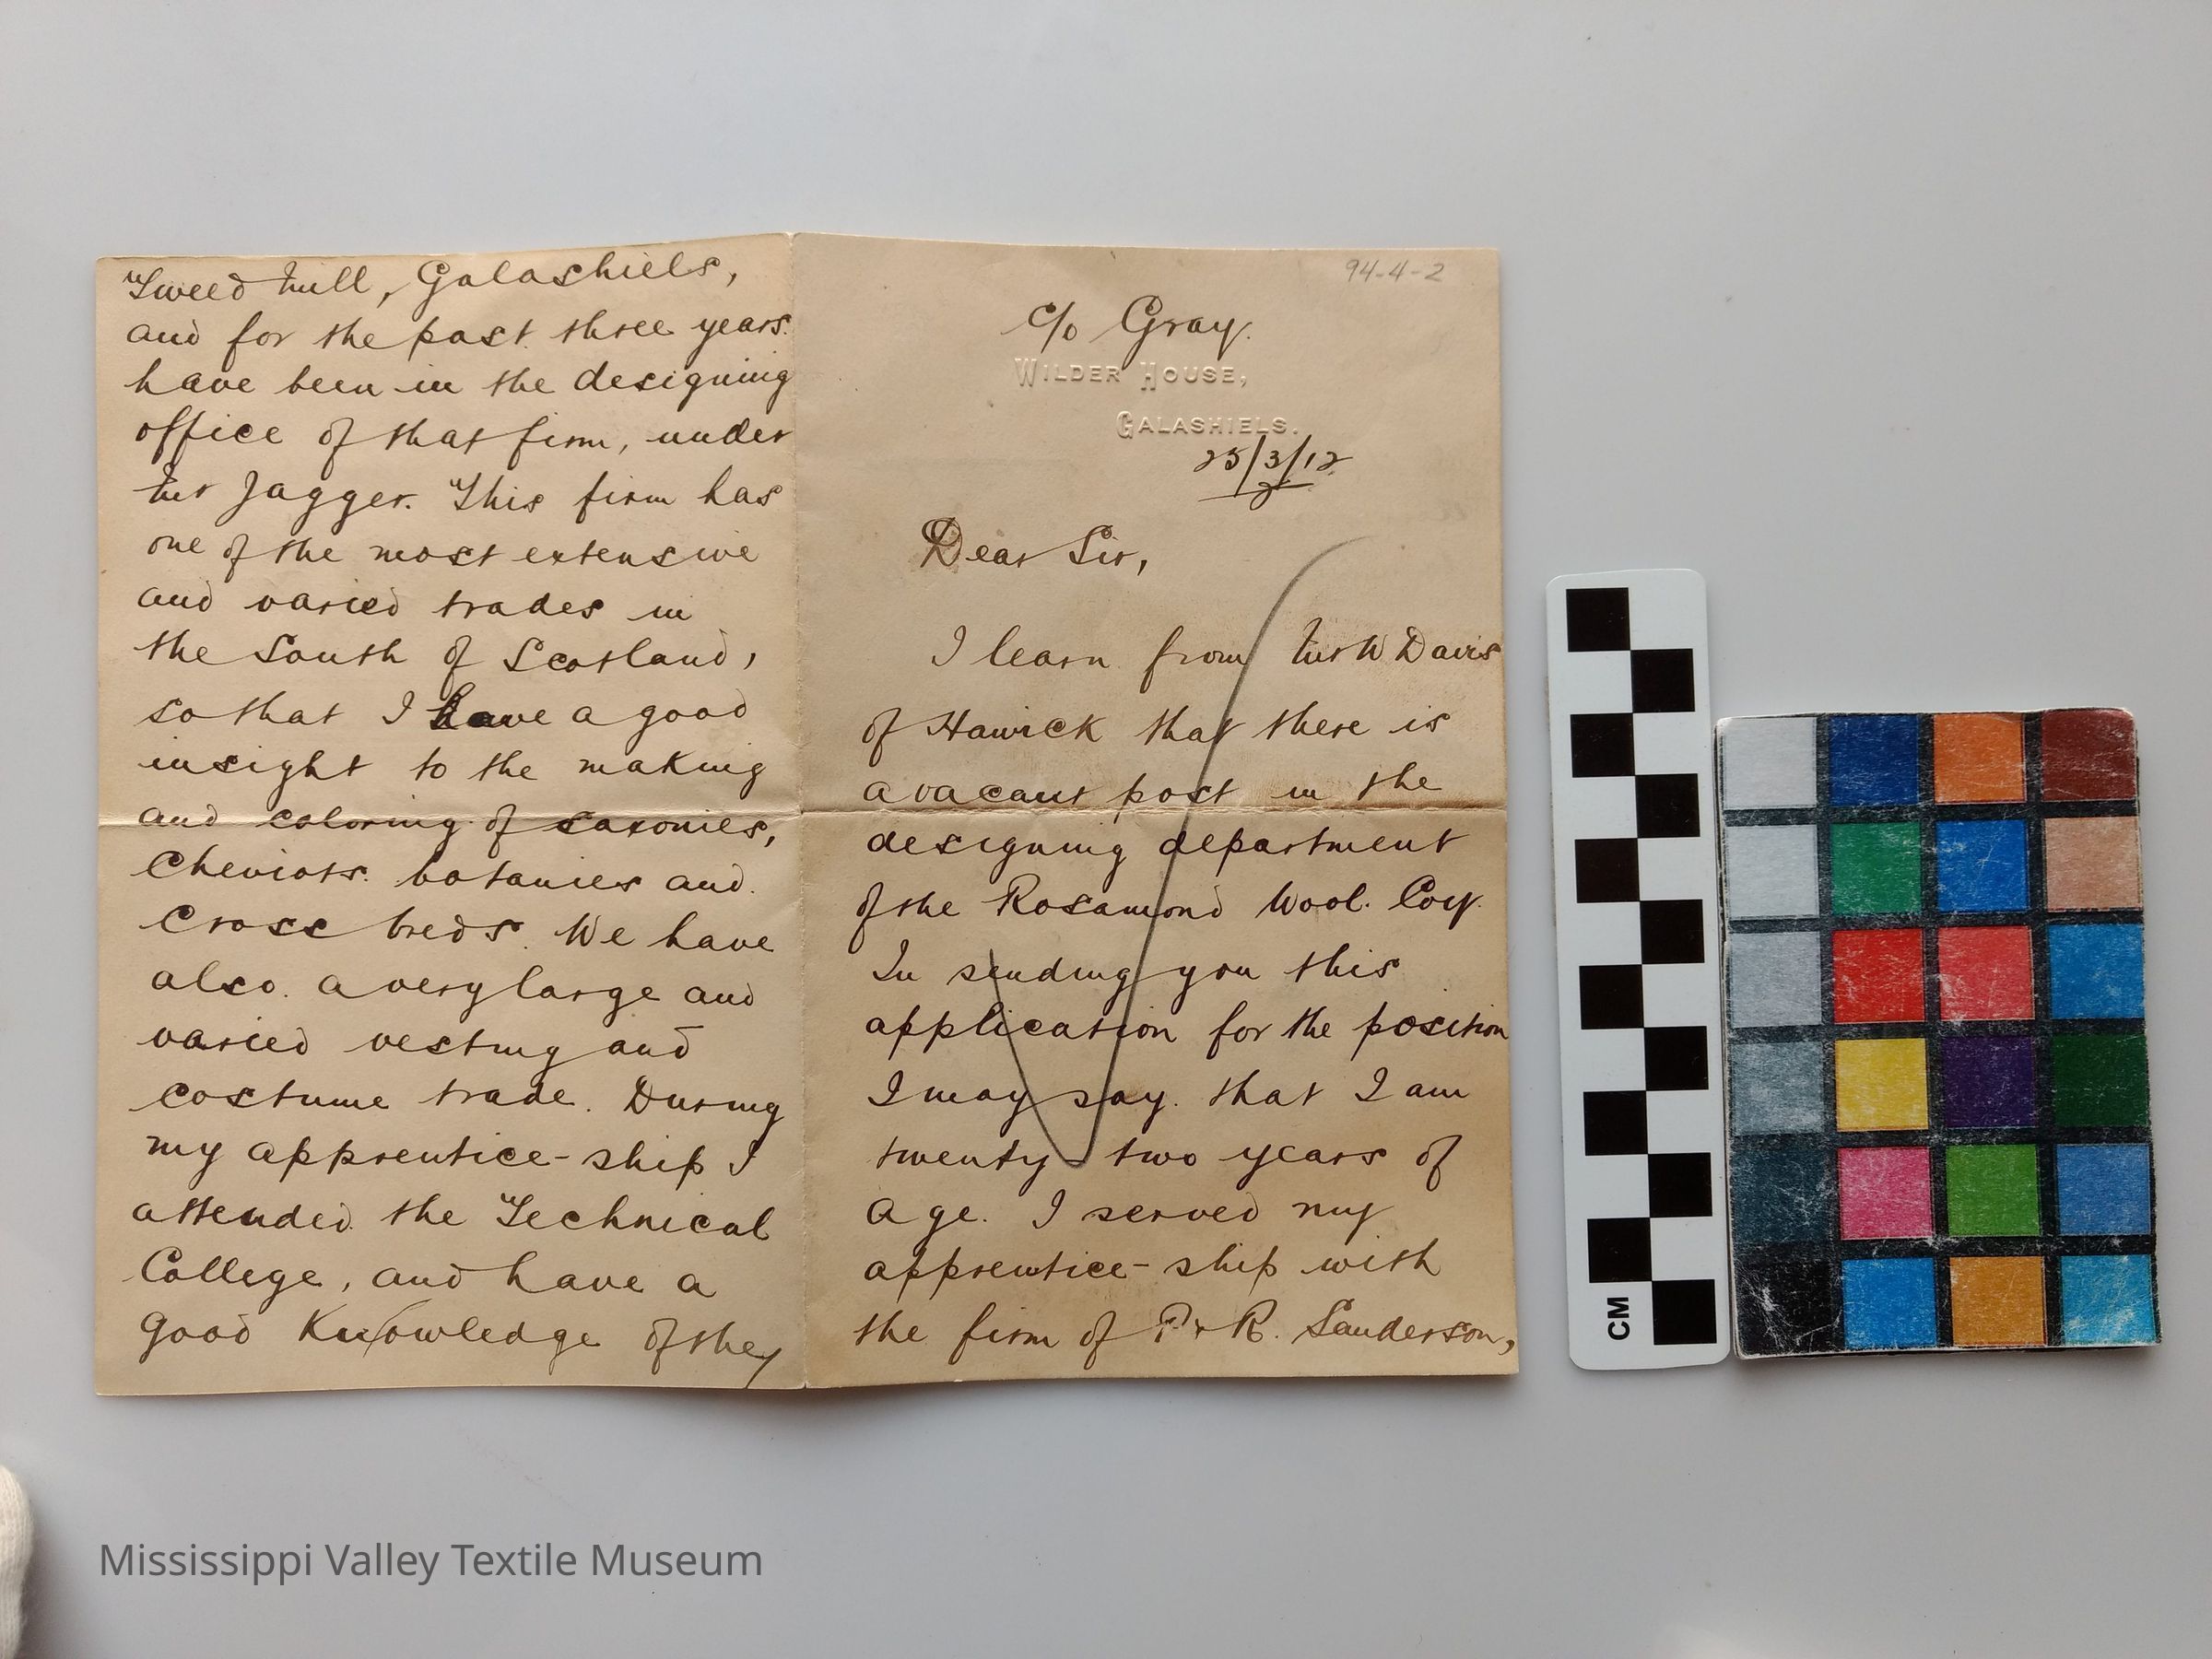 94-4-2
c/o Gray.
WILDER HOUSE,
GALASHIELS.
25/3/12
Dear Sir,
I learn from Mr W Davis
of Hawick that there is
a vacant post in the
designing department
of the Rosamond Wool. Coy.
In sending you this
application for the position
I may say that I am
twenty-two years of
age. I served my
apprentice-ship with
the firm of P & R. Sanderson,
Tweed Mill, Galashiels,
and for the past three years
have been in the designing
office of that firm, under
Mr Jagger. This firm has
one of the most extensive
and varied trades in
the South of Scotland,
so that I have a good
insight to the making
and coloring of saxonies,
Cheviots. botanies and
Cross breds. We have
also a very large and
varied vesting and
costume trade. During
my apprentice-ship I
attended the Technical
College, and have a
good Knowledge of the
CM
Mississippi Valley Textile Museum